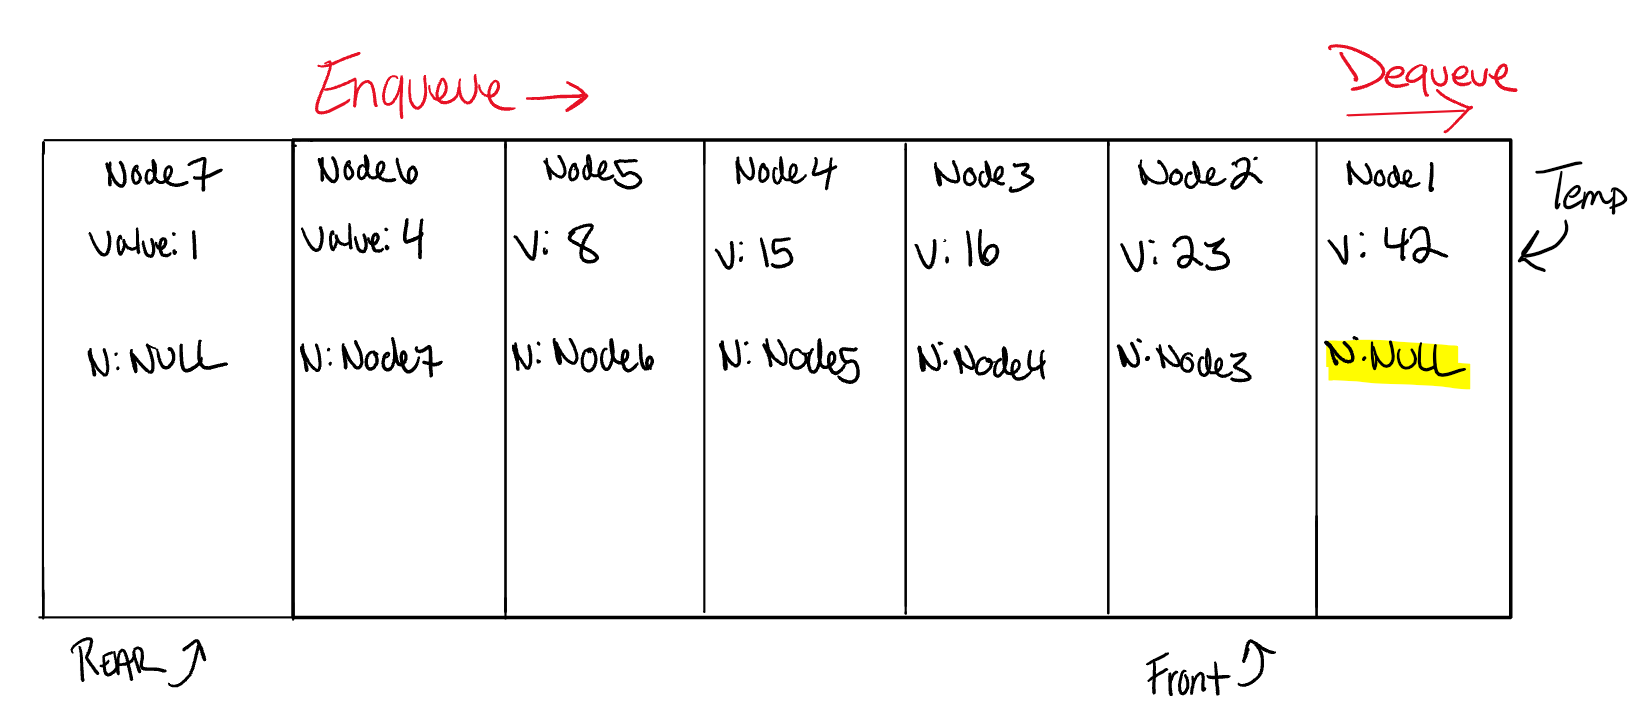 Enqueue →
Dequeue
Node7 Node6 Node5 Node4 Node3 Node2 Node1
Temp
Value: 1 Value: 4 V: 8 V: 15 V: 16 V: 23 V: 42
N: NULL N: Node7 N: Node6 N: Node5 N: Node4 N: Node3 N: NULL
REAR
Front